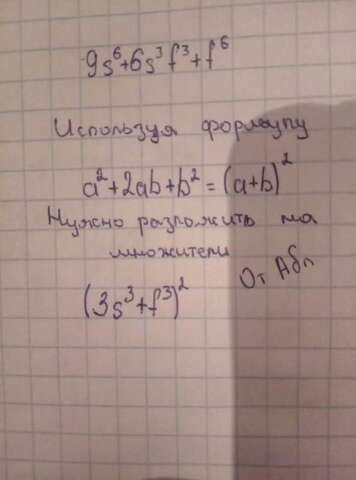 9s⁶+6s³f³+f⁶
Используя формулу
a²+2ab+b²=(a+b)²
Нужно разложить на
множители
(3s³+f³)²
От Абп